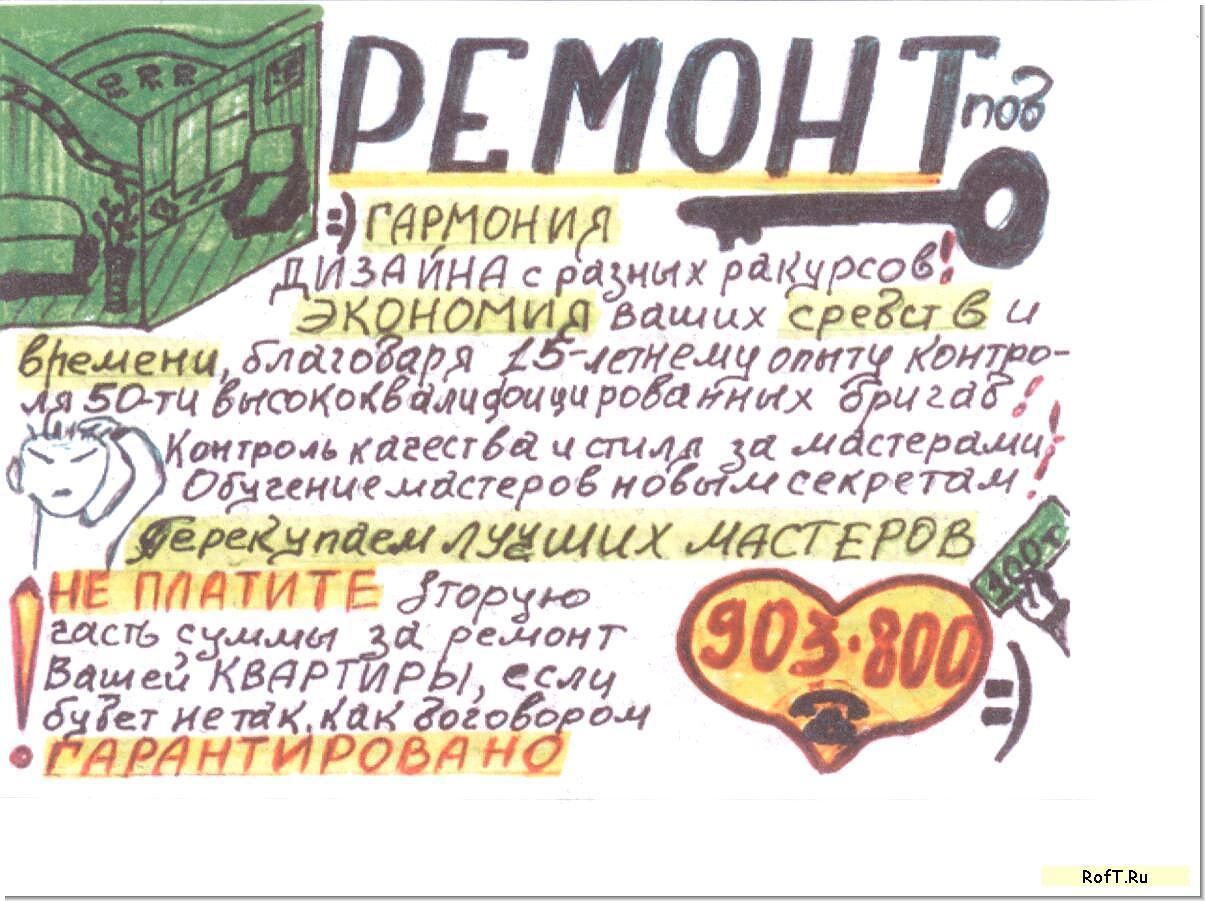 РЕМОНТ под
=) ГАРМОНИЯ
ДИЗАЙНА с разных ракурсов!
ЭКОНОМИЯ ваших средств и
времени, благодаря 15-летнему опыту контро-
ля 50-ти высококвалифицированных бригад!
Контроль качества и стиля за мастерами!
Обучение мастеров новым секретам!
Перекупаем ЛУЧШИХ МАСТЕРОВ
100т
! НЕ ПЛАТИТЕ вторую
часть суммы за ремонт
Вашей КВАРТИРЫ, если
будет не так, как договором
ГАРАНТИРОВАНО
903-800
=)
RofT.Ru